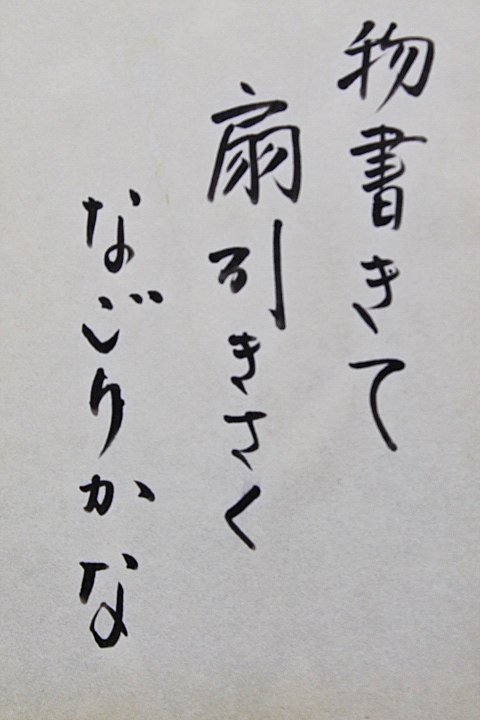 物書きて
扇引きさく
なごりかな